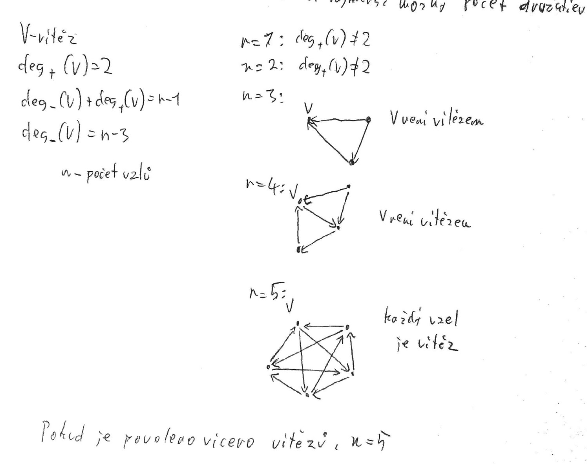 počet
V-vítěz
deg₊(V)=2
deg₋(V)+deg₊(V)=n-1
deg₋(V)=n-3
n - počet uzlů
n=1: deg₊(V)≠2
n=2: deg₊(V)≠2
n=3:
V
V není vítězem
n=4: V
V není vítězem
n=5:
V
každý uzel
je vítěz
Pokud je povoleno vícero vítězů, n=5